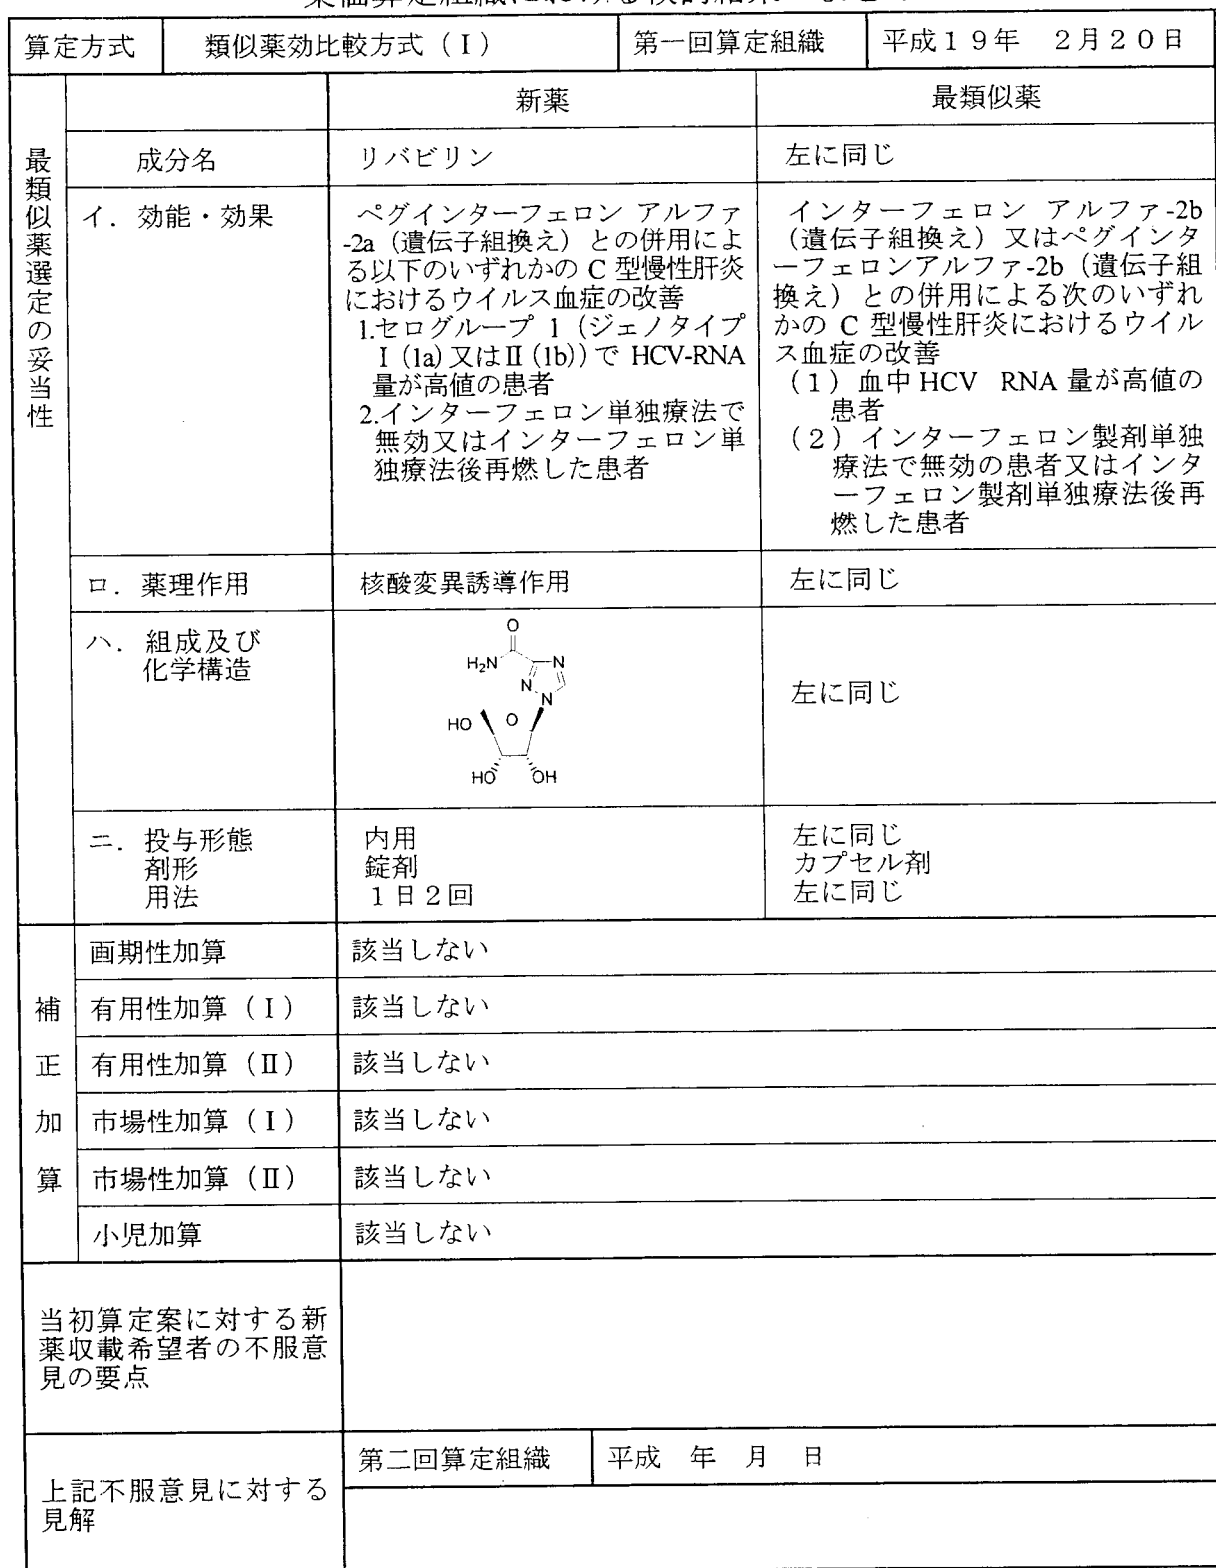 算定方式 類似薬効比較方式（Ⅰ） 第一回算定組織 平成１９年　２月２０日
最類似薬選定の妥当性
新薬 最類似薬
成分名 リバビリン 左に同じ
イ．効能・効果
ペグインターフェロン アルファ
-2a（遺伝子組換え）との併用によ
る以下のいずれかの C 型慢性肝炎
におけるウイルス血症の改善
1.セログループ 1（ジェノタイプ
Ⅰ(1a) 又はⅡ(1b)）で HCV-RNA
量が高値の患者
2.インターフェロン単独療法で
無効又はインターフェロン単
独療法後再燃した患者
インターフェロン アルファ-2b
（遺伝子組換え）又はペグインタ
ーフェロンアルファ-2b（遺伝子組
換え）との併用による次のいずれ
かの C 型慢性肝炎におけるウイル
ス血症の改善
（１）血中 HCV RNA 量が高値の
患者
（２）インターフェロン製剤単独
療法で無効の患者又はインタ
ーフェロン製剤単独療法後再
燃した患者
ロ．薬理作用 核酸変異誘導作用 左に同じ
ハ．組成及び
化学構造
O
H₂N
N
N
N
HO
O
HO
OH
左に同じ
ニ．投与形態 内用 左に同じ
剤形 錠剤 カプセル剤
用法 １日２回 左に同じ
補正加算
画期性加算 該当しない
有用性加算（Ⅰ） 該当しない
有用性加算（Ⅱ） 該当しない
市場性加算（Ⅰ） 該当しない
市場性加算（Ⅱ） 該当しない
小児加算 該当しない
当初算定案に対する新
薬収載希望者の不服意
見の要点
上記不服意見に対する
見解
第二回算定組織 平成　年　月　日